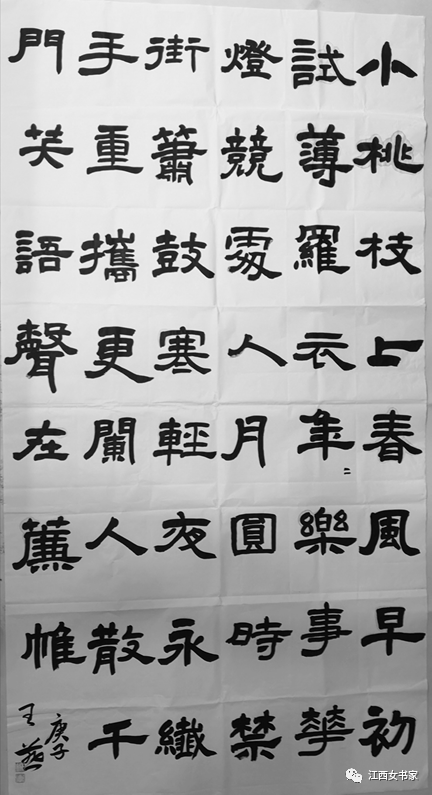 小桃枝上春風早初
試薄羅衣年〻樂事華
燈競處人月圓時禁
街簫鼓寒輕夜永纖
手重攜更闌人散千
門笑語聲在簾帷
庚子
王
江西女书家